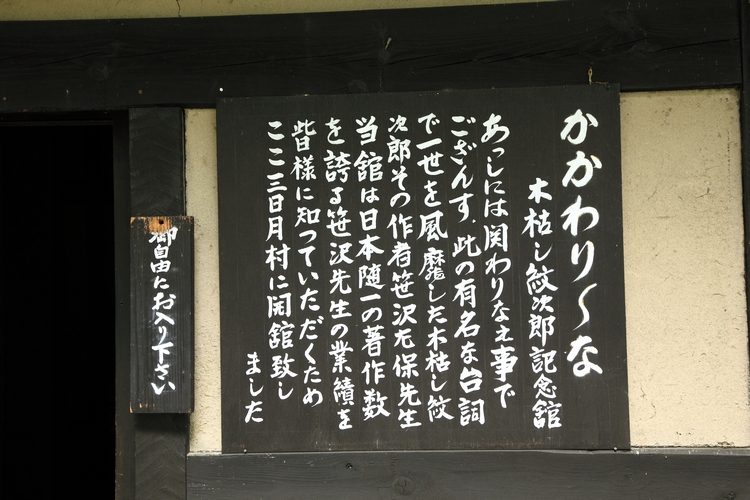 かかわり～な
木枯し紋次郎記念舘
あっしには関わりなえ事で
ござんす。此の有名な台詞
で一世を風靡した木枯し紋
次郎その作者笹沢左保先生
当舘は日本随一の著作数
を誇る笹沢先生の業績を
皆様に知っていただくため
ここ三日月村に開舘致し
ました
御自由にお入り下さい